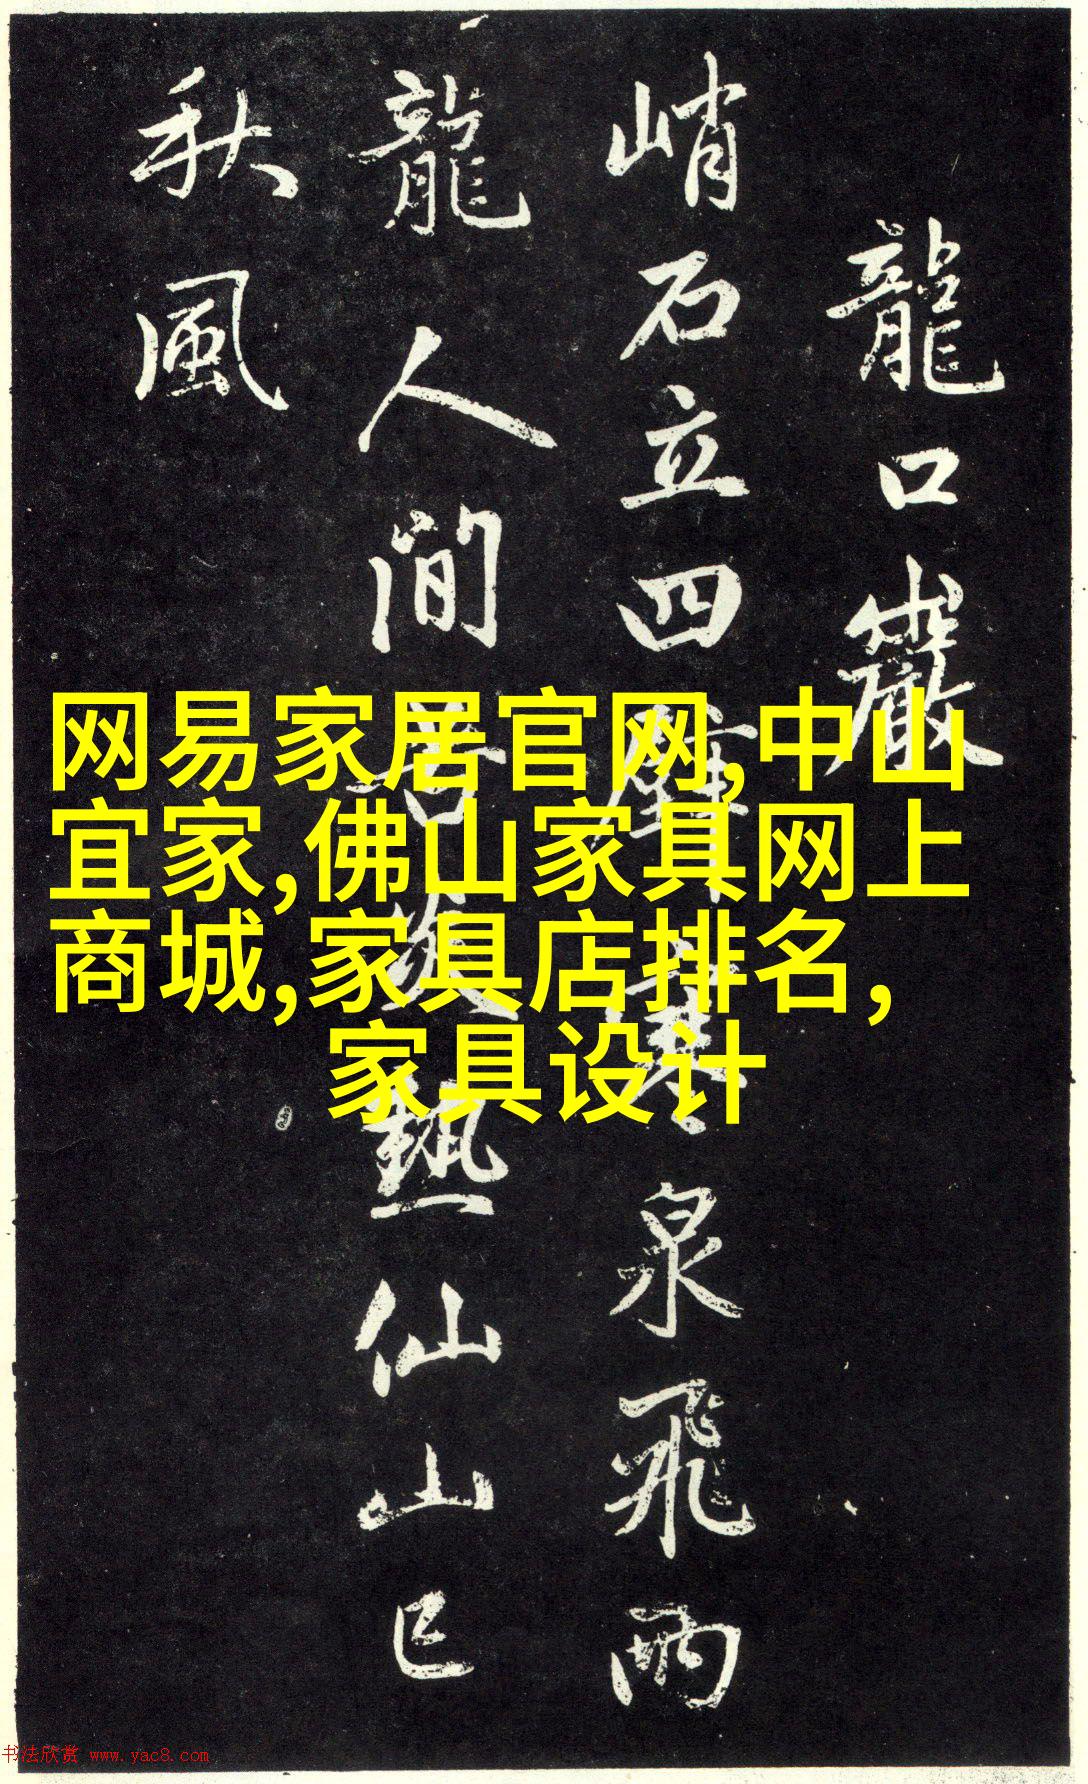 龍口巖
峭石立四壁寒泉飛兩
龍人間苦炎熱仙山已
秋風
网易家居官网,中山
宜家,佛山家具网上
商城,家具店排名,
家具设计
书法欣赏 www.yac8.com